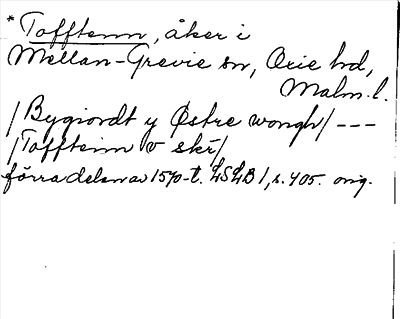 * Tofftenn, åker i
Mellan-Grevie sn, Oxie hd,
Malm. l.
/Bygiordt y Østre wongh/ ---
/Tofftenn v skr/
förra delen av 1570-t. LSLB I, s. 405. orig.